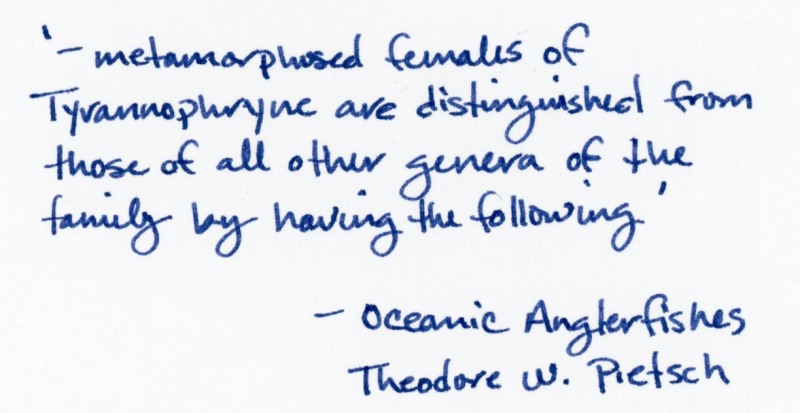 '– metamorphosed females of
Tyrannophryne are distinguished from
those of all other genera of the
family by having the following'
– Oceanic Anglerfishes
Theodore W. Pietsch